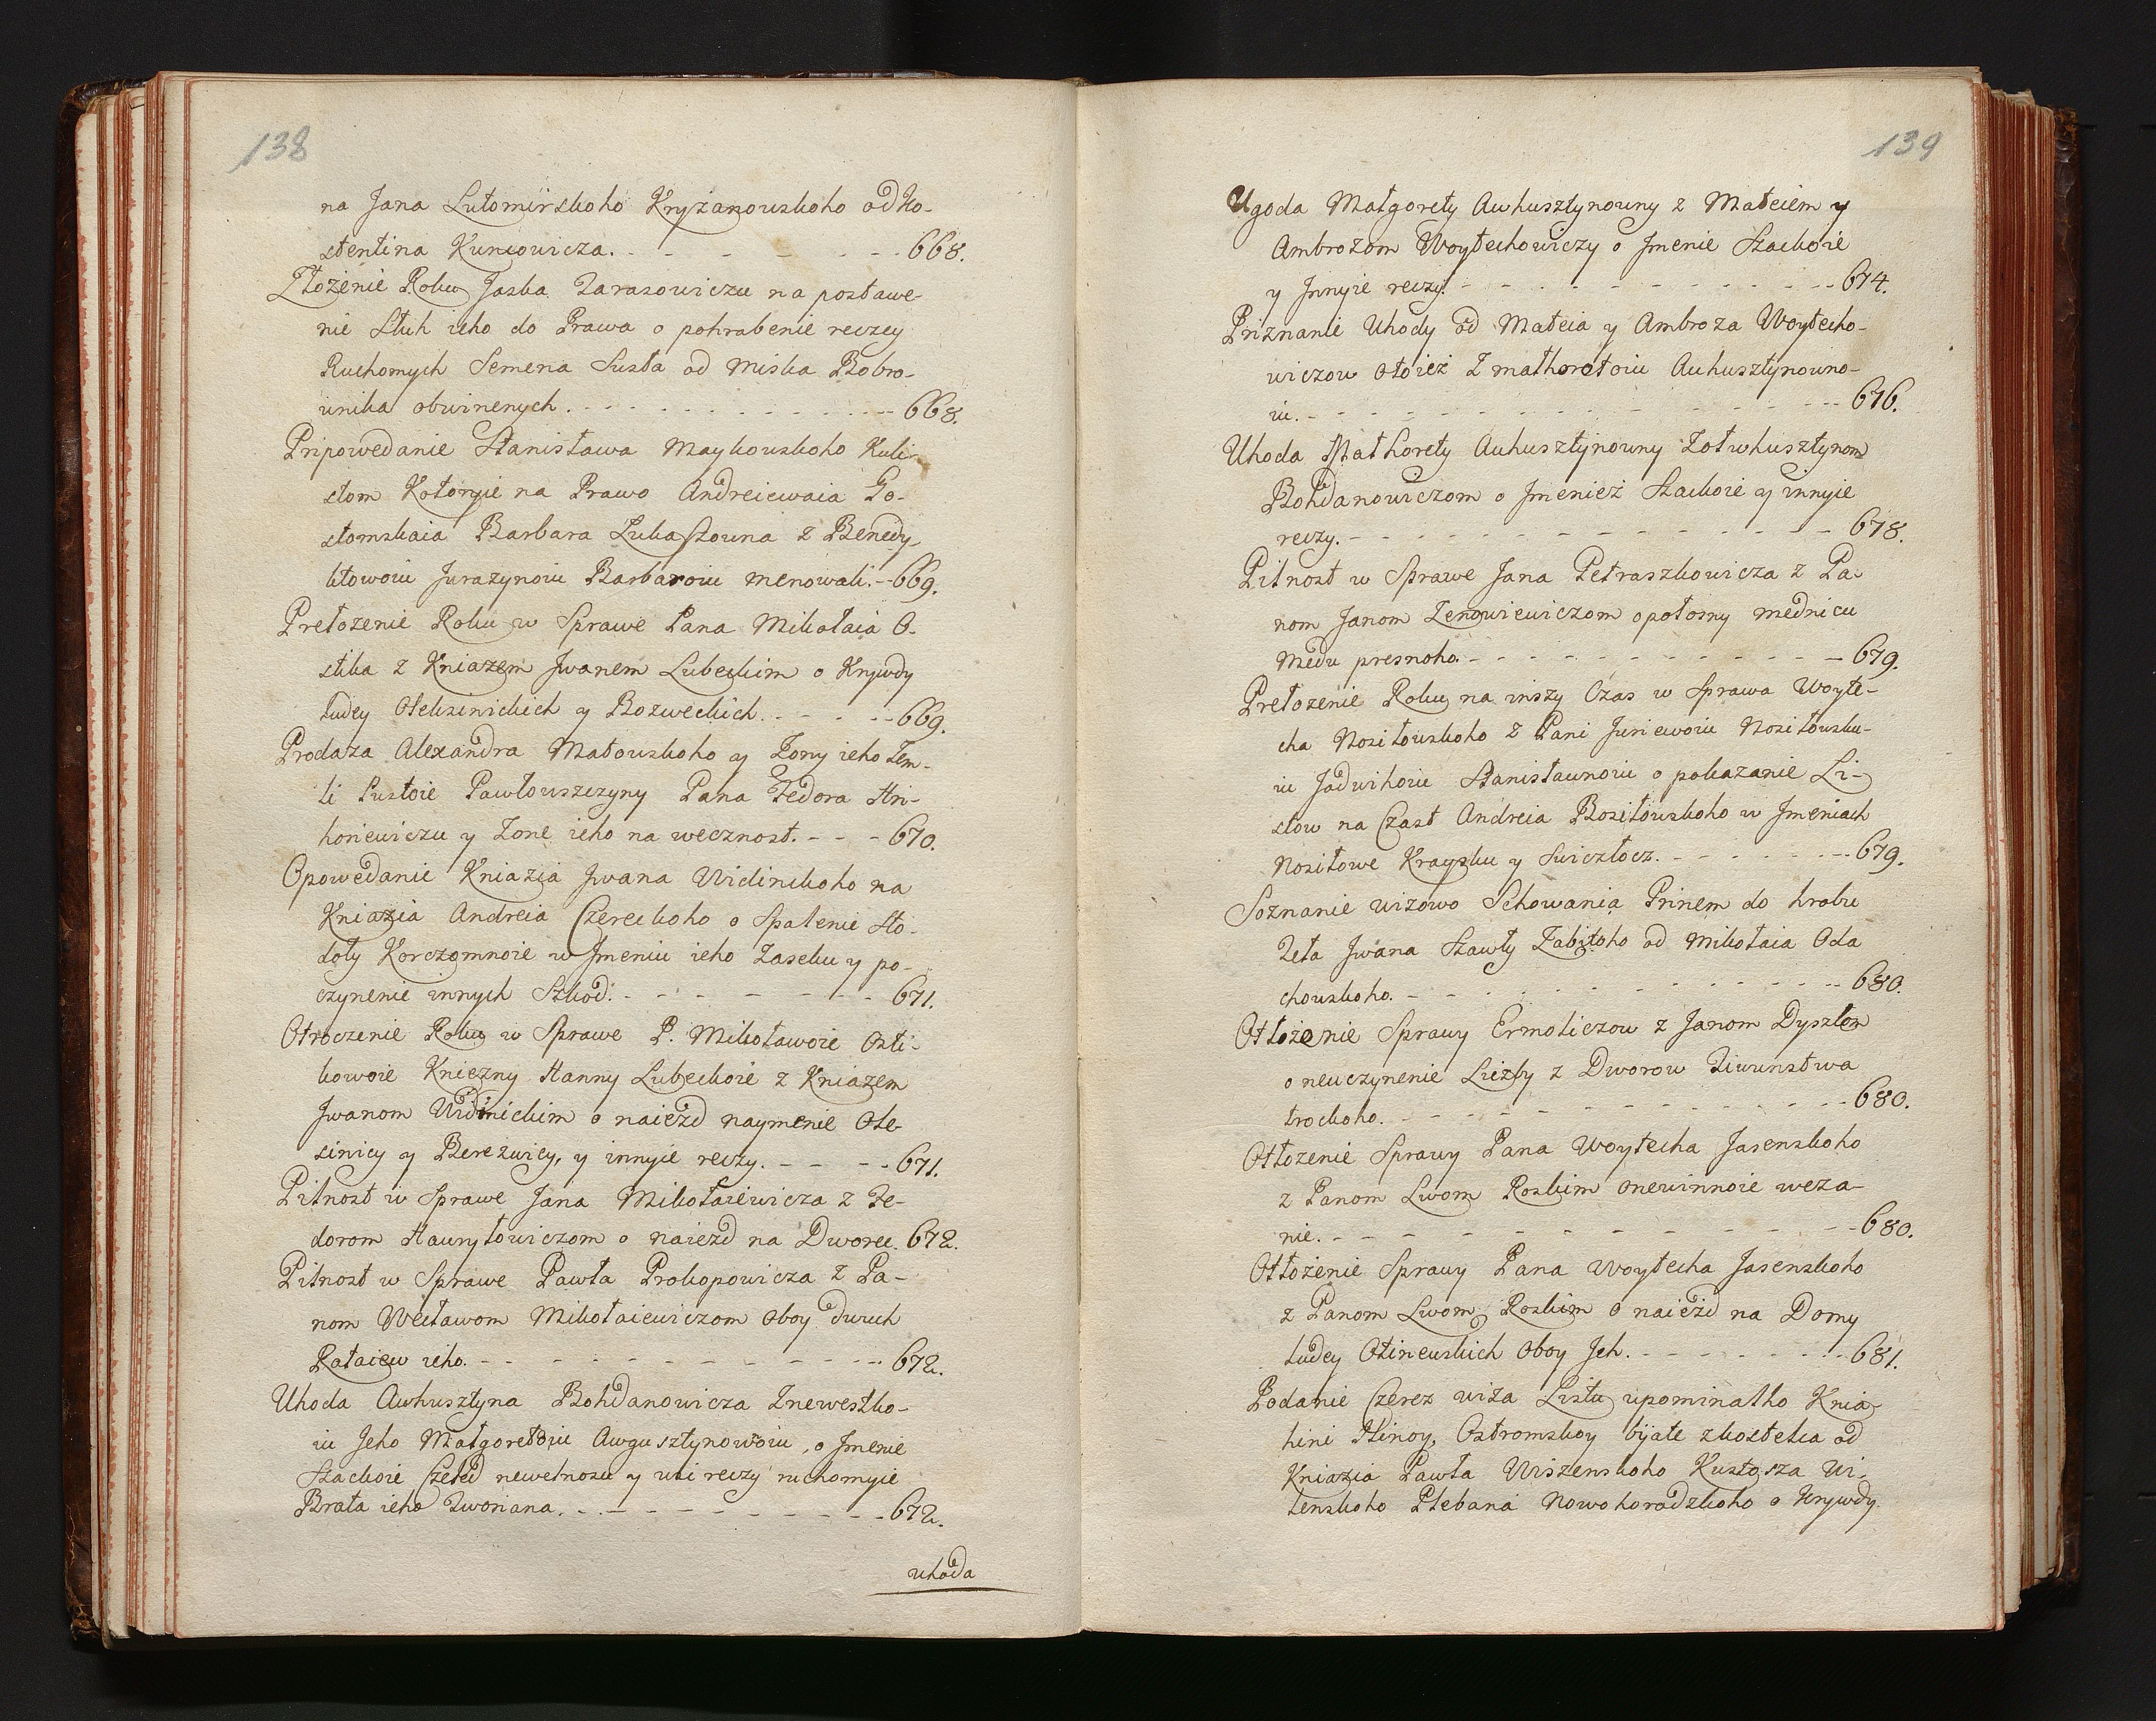 138
na Jana Lutomirskoho Kryżanouskoho od Ko-
stentina Kuncowicza. - - - - - - - 668.
Złożenie Roku Jaska Tarasowiczu na postawe-
nie Słuh ieho do Prawa o pohrabenie reczey
Ruchomych Semena Susła od Miska Bobro-
unika obwinenych. - - - - - - - - - - 668.
Pripowedanie Stanisława Maykouskoho Kuli
stom Kotoryie na Prawo Andreiewaia Go-
stomskaia Barbara Lukaszouna z Benedy-
ktowoiu Jurazynoiu Barbaroiu menowali. - 669.
Prełożenie Roku w Sprawe Pana Mikołaia O-
stika z Kniazem Jwanem Lubeckim o Krywdy
Ludey Olekszinickich y Bozweckich. - - - - 669.
Prodaża Alexandra Małouskoho y Żony ieho Zem-
li Pustoie Pawłouszczyny Pana Fedora Hri-
horiewiczu y Żone ieho na wecznost. - - - 670.
Opowedanie Kniazia Jwana Widinskoho na
Kniazia Andreia Czereckoho o Spalenie Sto-
doły Korczomnoie w Jmeniu ieho Zaseku y po-
czynenie innych Szkod. - - - - - - 671.
Otroczenie Roku w Sprawe P. Mikoławoie Osti-
kowoie Kniezny Hanny Lubeckoie z Kniazem
Jwanom Widinickim o naiezd naymenie Ole-
sinicy y Berezwicy, y innyie reczy. - - - - 671.
Pilnost w Sprawe Jana Mikołaiewicza z Fe-
dorom Hawryłowiczom o naiezd na Dworec. 672.
Pilnost w Sprawe Pawła Prokopowicza z Pa-
nom Wecławom Mikołaiewiczom oboy dwuch
Rataiew ieho. - - - - - - - - - - - 672.
Uhoda Awhusztyna Bohdanowicza Znewestko-
iu Jeho Małgoretoiu Awgusztynowoiu, o Jmenie
Szackoie Czeled newelnosu y usi reczy ruchomyie
Brata ieho Dworiana. - - - - - - - - - 672.
uhoda
139
Ugoda Małgorety Auhusztynouny z Mateiem y
Ambrozom Woytechowiczy o Jmenie Szackoie
y Jnnyie reczy. - - - - - - - - - - 674.
Priznanie Uhody od Mateia y Ambroza Woytecho-
wiczow otoież Z małhoretoiu Auhusztynowno-
iu. - - - - - - - - - - - - - - 676.
Uhoda Małhorety Auhusztynouny Zotwhusztynom
Bohdanowiczom o Jmenież Szackoie y innyie
reczy. - - - - - - - - - - - - 678.
Pilnost w Sprawe Jana Petraszkowicza z Pa
nom Janom Zenowiewiczom opołomy mednicu
Medu presnoho. - - - - - - - - - - - 679.
Prełożenie Roku na inszy Czas w Sprawa Woyte-
cha Nositouskoho z Pani Juriewoiu Nositousku-
iu Jadwihoiu Stanisławnoiu o pokazanie Li-
stow na Czast Andreia Bositouskoho w Jmeniach
Nositowe Kraysku y Swiczłocz. - - - - - - 679.
Soznanie wizowo Schowania Prinem do hrobu
Teła Jwana Szawły Zabitoho od Mikołaia Oda
chouskoho. - - - - - - - - - - - - 680.
Otłożenie Sprawy Ermoliczow z Janom Dyszłen
o neuczynenie Liczby z Dworow Tiwunstwa
trockoho. - - - - - - - - - - - - 680.
Otłożenie Sprawy Pana Woytecha Jasenskoho
z Panom Lwom Roskim onewinnoie weza-
nie. - - - - - - - - - - - - - 680.
Otłożenie Sprawy Pana Woytecha Jasenskoho
z Panom Lwom Roskim o naieżd na Domy
Ludey Olineuskich oboy Jch. - - - - - - - 681.
Podanie Czerez wiża Listu upominalho Knia-
hini Ilinoy, Ostromskoy byiate zkostelca od
Kniazia Pawła Wiszenskoho Kustosza Wi-
lenskoho Plebana Nowohorodzkoho o Krywdy.